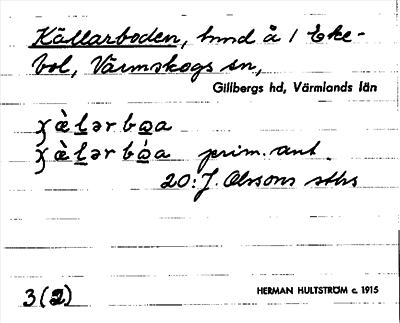 Källarboden, hmd å 1 Eke-
bol, Värmskogs sn,
Gillbergs hd, Värmlands län
prim. ant.
20: J. Olssons sths
3(2)
HERMAN HULTSTRÖM c. 1915